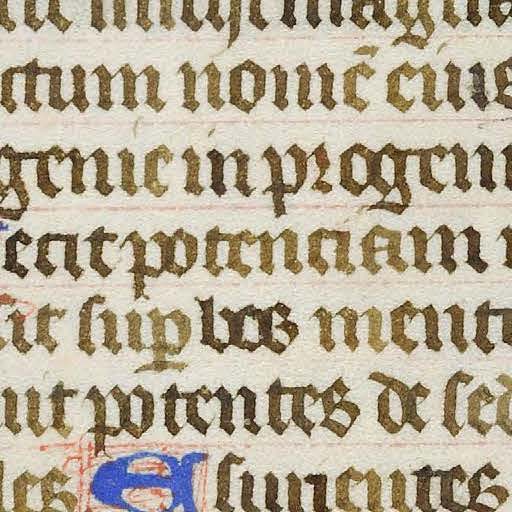 ctum nomē eius
genie in progeni
ecit potenciam
sup̱bos mente
uit potentes de sed
Esurientes